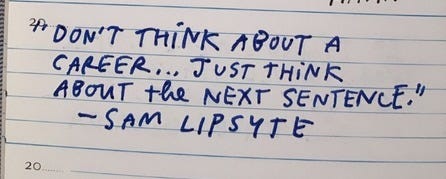 20
"DON'T THINK ABOUT A
CAREER... JUST THINK
ABOUT the NEXT SENTENCE."
-SAM LIPSYTE
20........